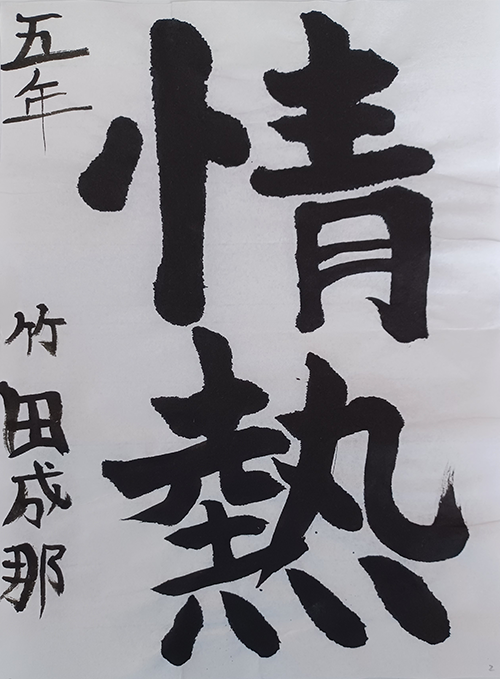 情熱
五年 竹田成那